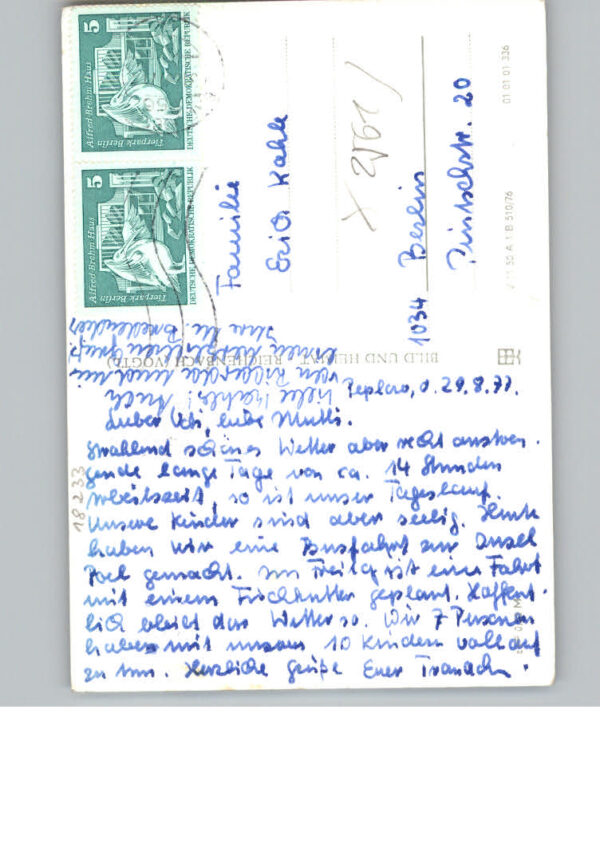 5
Alfred-Brehm-Haus
Tierpark Berlin
DEUTSCHE DEMOKRATISCHE REPUBLIK
5
Alfred-Brehm-Haus
Tierpark Berlin
DEUTSCHE DEMOKRATISCHE REPUBLIK
Familie
Erich Kahle
1034 Berlin
Pintschstr. 20
01 01 01 336
V 11 50 A 1 B 510/76
BILD UND HEIMAT REICHENBACH (VOGTL)
18233
29.8.77.
Lieber Vati, liebe Mutti.
Strahlend schönes Wetter aber recht anstren-
gende lange Tage von ca. 14 Stunden
Arbeitszeit, so ist unser Tageslauf.
Unsere Kinder sind aber seelig. Heute
haben wir eine Busfahrt zur Insel
Poel gemacht. Im Freitag ist eine Fahrt
mit einem Fischkutter geplant. Hoffent-
lich bleibt das Wetter so. Wir 7 Personen
haben mit unseren 10 Kindern vollauf
zu tun. Herzliche Grüße Euer